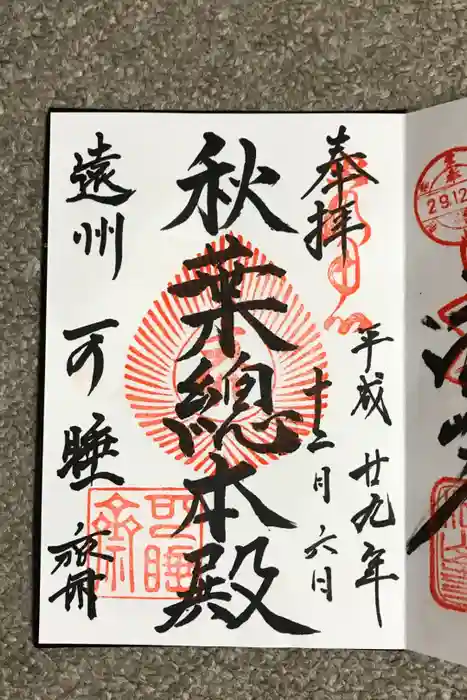 奉拝
平成廿九年
十二月六日
秋葉總本殿
遠州 可睡齋
可睡齋
29.12